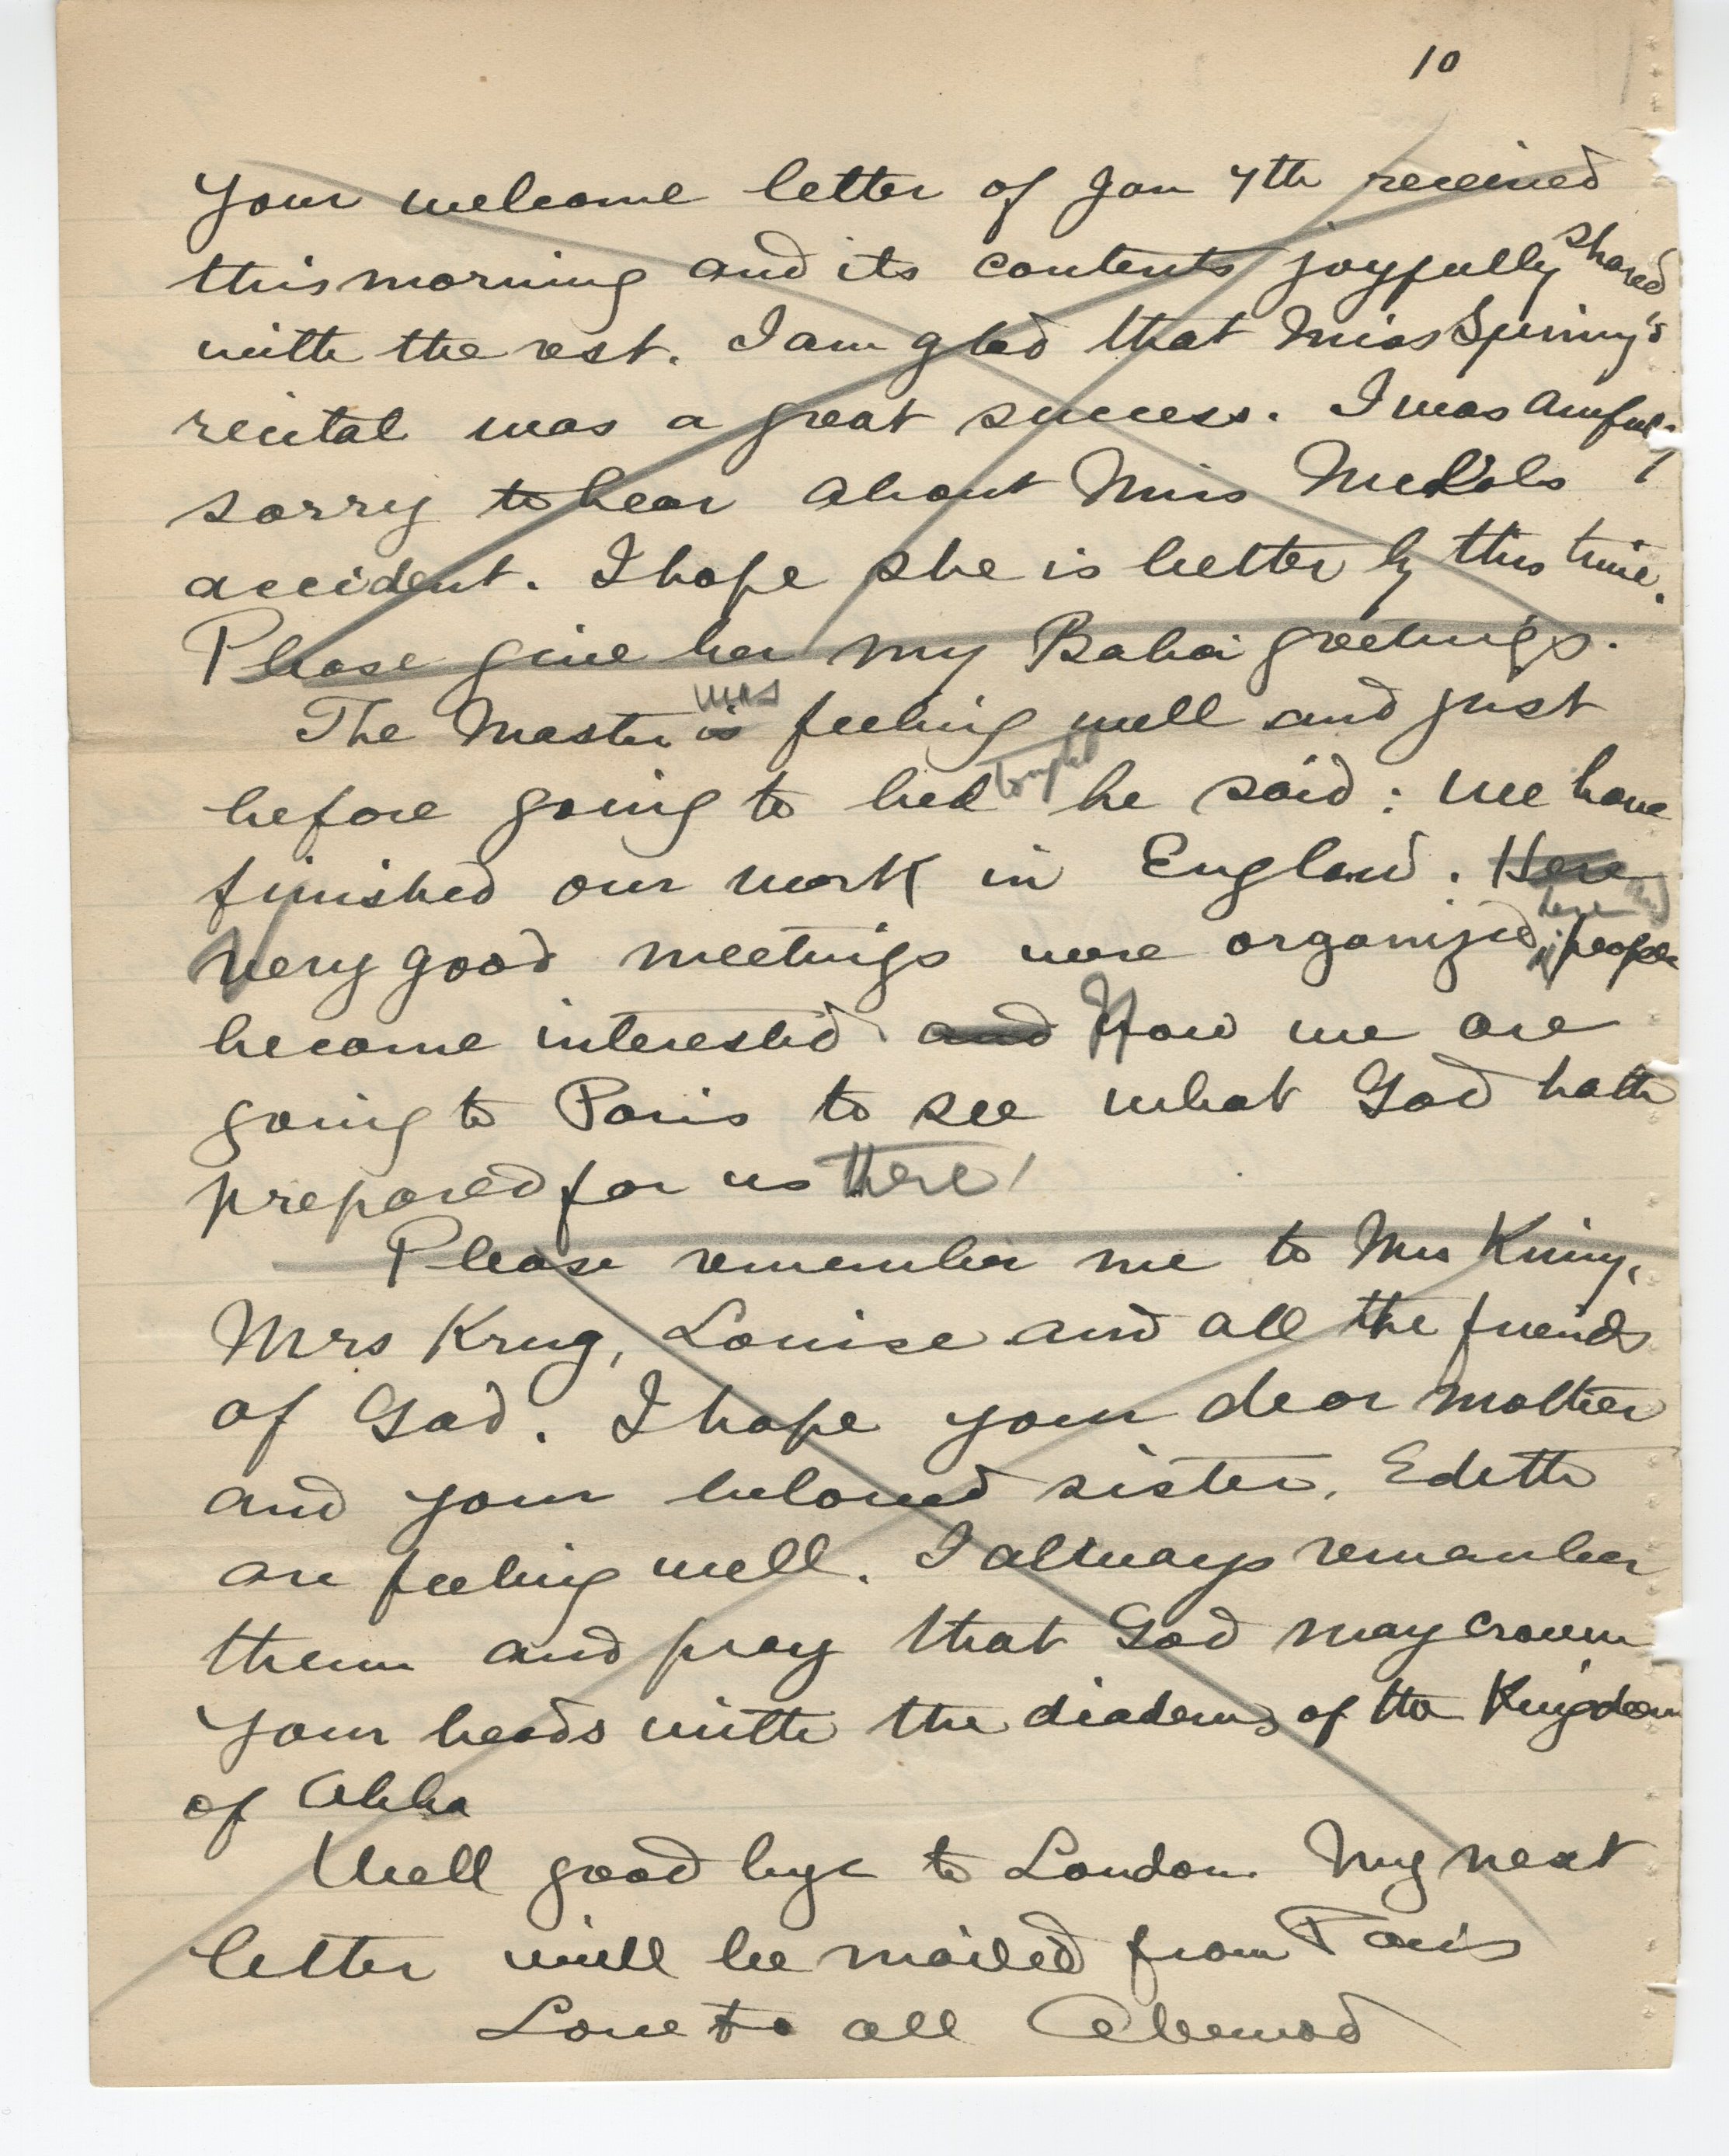 10
Your welcome letter of Jan 7th received
this morning and its contents joyfully shared
with the rest. I am glad that Miss Spinny's
recital was a great success. I was awfully
sorry to hear about Miss
accident. I hope she is better by this time.
Please give her my Bahai greetings.
The Master is was feeling well and just
before going to bed tonight he said: We have
finished our work in England. Here
Very good meetings were organized, people
become interested. and Now we are
going to Paris to see what God hath
prepared for us there!
Please remember me to Mrs Kinny,
Mrs Krug, Louise and all the friends
of God. I hope your dear mother
and your beloved sister, Edith
are feeling well. I always remember
them and pray that God may crown
your heads with the diadems of the Kingdom
of Abha
Well good bye to London. My next
letter will be mailed from Paris
Love to all Ahmad